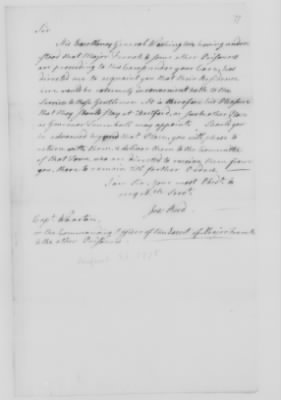 77
Sir
His Excellency General Washington having under
stood that Major French & some other Prisoners
are proceeding to this Camp under your Care, has
directed me to acquaint you that their Residence
here would be extremely inconvenient both to the
Service & those Gentlemen. It is therefore his Pleasure
that they should stay at Hartford, or such other Place
as Governor Trumbull may appoint. Should you
be advanced beyond that Place, you will please to
return with them, & deliver them to the Committee
of that Town, who are directed to receive them from
you, there to remain till further Orders.
I am Sir, your most Obed. &
very Hble Serv.
Jos: Reed
Capt.
or the Commanding Officer of the Escort of Major French
& the other Prisoners
August 1775